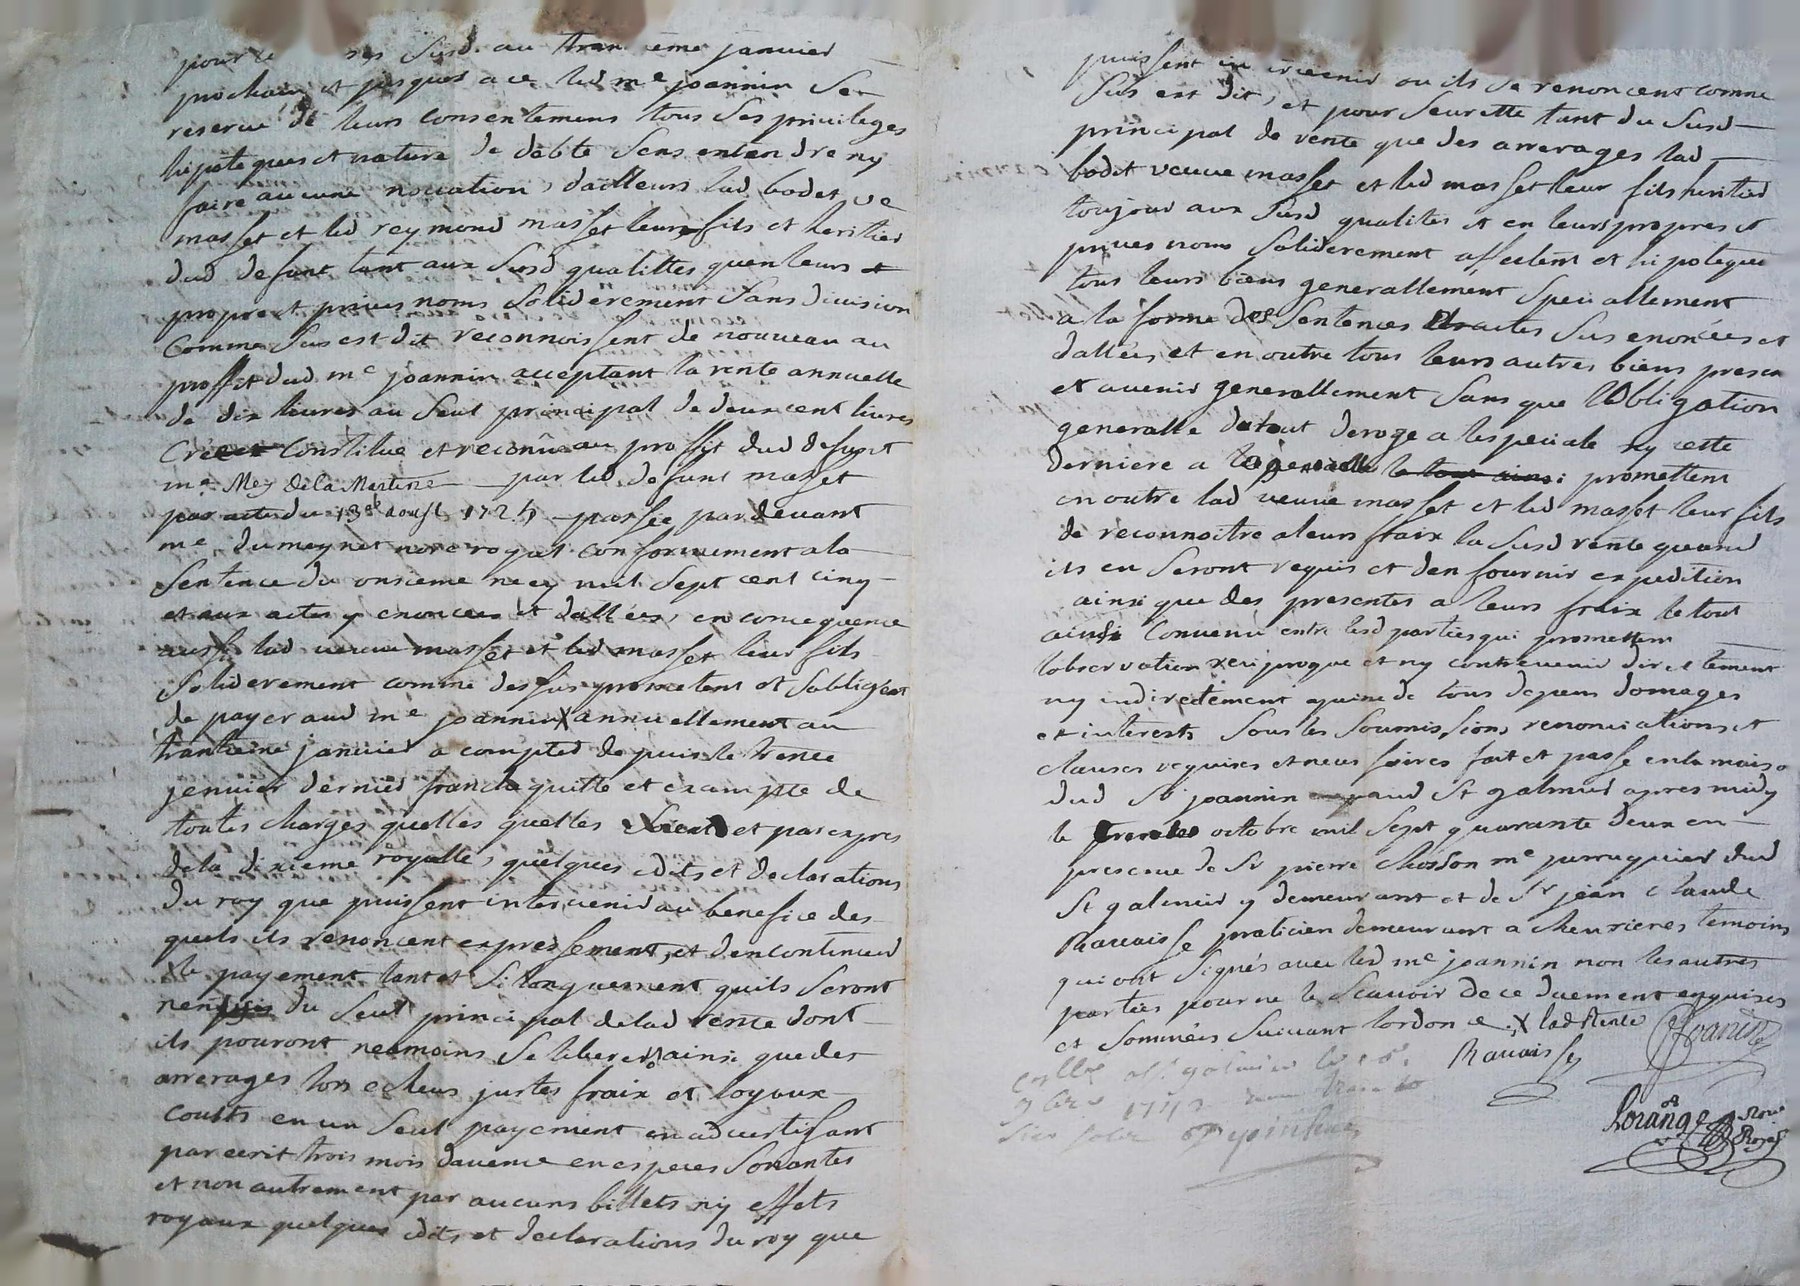 susd. au tran ème janvier
prochain et jusques a ce led me joannin se
reserve de leurs consentemens tous ses privileges
hipoteques et nature de debte sens entendre ny
faire aucune novation, dailleurs lad bodet ve
masset et led reymond masset leur fils et heritier
dud defunt tant aux susd qualittes quen leurs et
propre et privés noms soliderement sans division
comme sus est dit reconnoissent de nouveau au
proffit dud me joannin acceptant la rente annuelle
de dix livres au seul principal de deux cent livres
constitue et reconnu au proffit dud defunt
me Mey de la Mestine par led defunt masset
par acte du 13e aoust 1725 passée par devant
me dumeynet nore royal conformement a la
sentence du onsieme may mil sept cent cinq
et aux actes y enoncees et dattées, en consequence
aussi lad veuve masset et led masset leur fils
soliderement comme dessus promettent et sobligent
de payer aud me joannin X annuellement au
trantieme janvier a compter depuis le trente
janvier dernier franche quitte et exampte de
toutes charges quelles quelles soient et par expres
de la dixieme royalle, quelques edits et declarations
du roy que puissent intervenir au benefice des
quels ils renoncent expressement, et den continuer
le payement tant et si longuement quils seront
du seul principal de lad rente dont
ils pouront neomoins se liberer ainsi que des
arrerages lors echeus justes fraix et loyaux
coults en un seul payement en advertissant
par ecrit trois mois davence en especes sonantes
et non autrement par aucuns billets ny effets
royaux quelques edits et declarations du roy que
puissent en intervenir ou ils se renoncent comme
sus est dit, et pour seurette tant du susd
principal de vente que des arrerages lad
bodet veuve masset et led masset leur fils heritier
toujour aux susd qualites et en leurs propres et
privés noms soliderement affectent et hipoteque
tous leurs biens generallement spetiallement
a la forme des sentences actes sus enoncées et
dattées, et en outre tous leurs autres biens presen
et avenir generallement sans que lobligation
generalle deroge a lespeciale ny cette
derniere a la generalle le tout ainsi promettent
en outre lad veuve masset et led masset leur fils
de reconnoitre a leurs fraix la susd rente quand
ils en seront requis et den fournir expedition
ainsi que des presentes a leurs fraix le tout
ainsi convenu entre lesd parties qui promettent
lobservation reciproque et ny contrevenir directement
ny indiretement a peine de tous depens domages
et interests sous les soumissions renonciations et
clauses requises et necessaires fait et passe en la maison
dud Sr joannin aud St galmier apres midy
le octobre mil sept quarante deux en
presence de Sr pierre Chosson me perruquier dud
St galmier y demeurant et de Sr jean claude
Ravaisse praticien demeurant a chevrieres temoins
qui ont signés avec led me joannin non les autres
parties pour ne le scavoir de ce duement enquises
et sommées suivant lordonce. X lad Rente Joanin
Ravaisse
Collé a St galmier le
8bre 1742
Lorange Nore
Royal